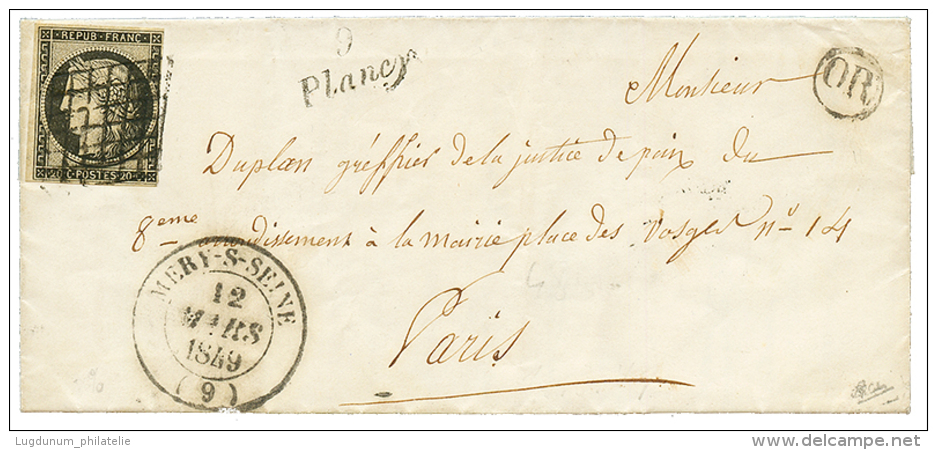 REPUB·FRANC·
20 C POSTES 20 C
9
Plancy
OR
Monsieur
Duplan gréffier de la justice de paix du
8eme arrondissement à la mairie place des Vosges n° 14
Paris
MERY-S-SEINE
12
MARS
1849
(9)
Lugdunum_philatelie
www.delcampe.net